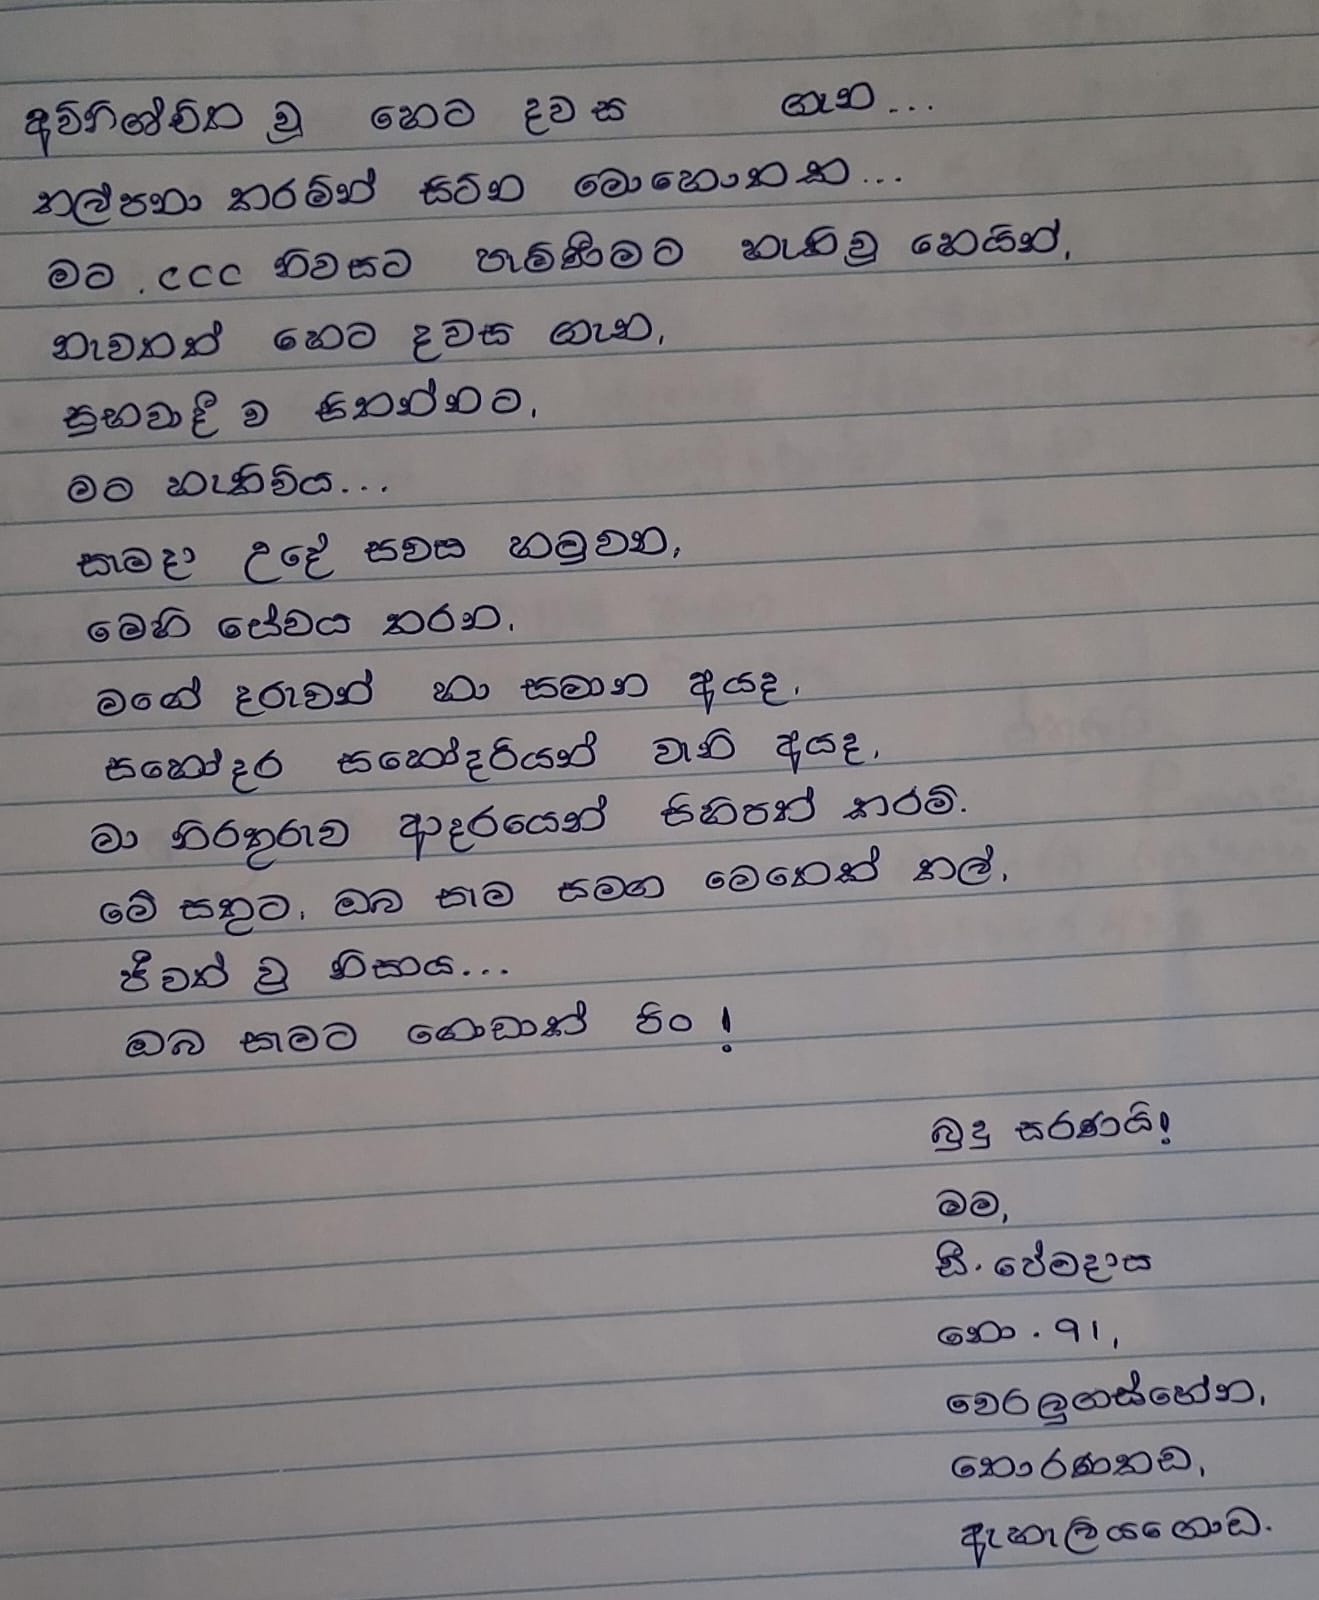 අවිනිශේචිත වූ හෙට දවස ගැන...
කල්පනා කරමින් සිටින මොහොතක...
මට .CCC නිවසට පැමිණීමට හැකිවූ හෙයින්,
නැවතත් හෙට දවස ගැන,
සුභවාදී ව සිතන්නට,
මට හැකිවිය...
සැමදා උදේ සවස හමුවන,
මෙහි සේවය කරන,
මගේ දරුවන් හා සමාන අයද,
සහෝදර සහෝදරියන් වැනි අයද,
මා නිරතුරුව ආදරයෙන් සිහිපත් කරමි.
මේ සතුට, ඔබ සැම සමග මෙතෙක් කල්,
ජීවත් වූ නිසාය...
ඔබ සැමට ගොඩාක් පිං !
බුදු සරණයි!
මම,
ඩී. පේමදාස
නො. 91,
වෙරලුගස්හේන,
තොරණකඩ,
ඇහැලියගොඩ.